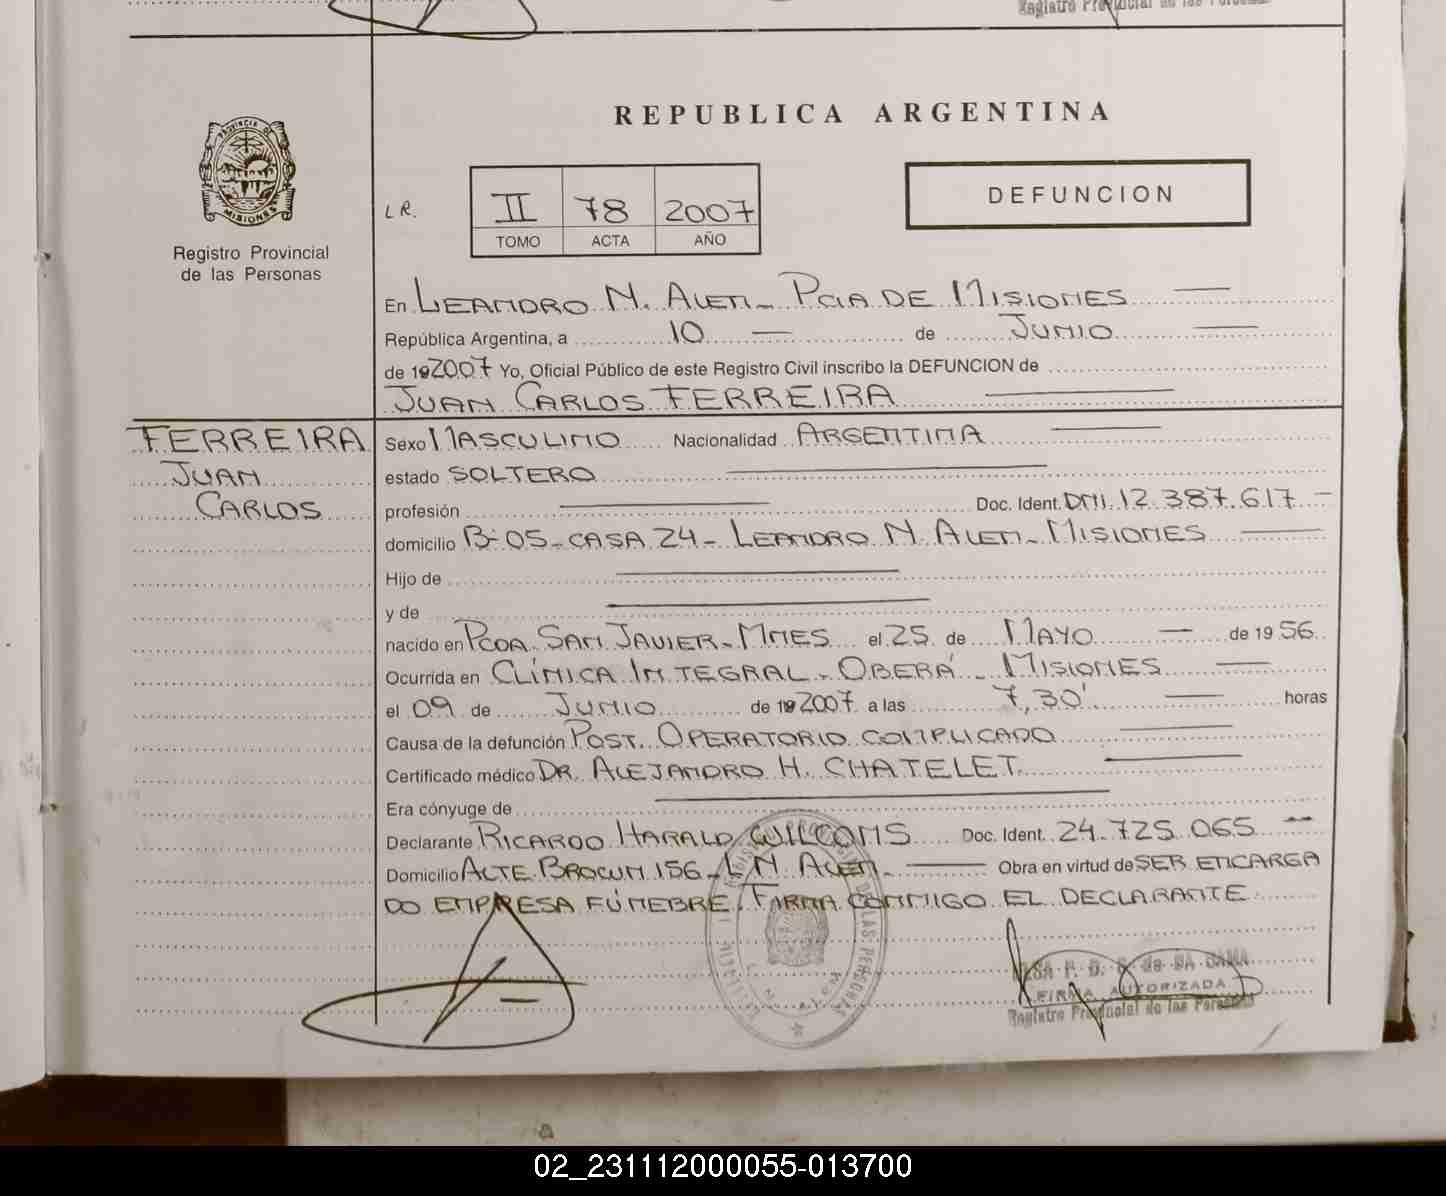 Registro Provincial de las Personas
REPUBLICA ARGENTINA
PROVINCIA DE
MISIONES
Registro Provincial
de las Personas
LR.
II 78 2007
TOMO ACTA AÑO
DEFUNCION
En LEANDRO N. ALEM - PCIA DE MISIONES
República Argentina, a 10 de JUNIO
de 192007 Yo, Oficial Público de este Registro Civil inscribo la DEFUNCION de
JUAN CARLOS FERREIRA
FERREIRA
JUAN
CARLOS
Sexo MASCULINO Nacionalidad ARGENTINA
estado SOLTERO
profesión Doc. Ident. DNI. 12.387.617.-
domicilio B-05-CASA 24- LEANDRO N ALEM- MISIONES
Hijo de
y de
nacido en PCDA. SAN JAVIER-MNES el 25 de MAYO de 1956
Ocurrida en CLÍNICA INTEGRAL - OBERÁ - MISIONES
el 09 de JUNIO de 192007 a las 7,30' horas
Causa de la defunción POST. OPERATORIO COMPLICADO
Certificado médico DR. ALEJANDRO H. CHATELET.
Era cónyuge de
Declarante RICARDO HARALD GUILLCOMS Doc. Ident. 24.725.065
Domicilio ALTE BROWN 156 - L N. ALEM. Obra en virtud de SER ENCARGA
DO EMPRESA FÚNEBRE. FIRMA CONMIGO EL DECLARANTE
DE LAS PERSONAS
L. N. ALEM
de DA GAMA
FIRMA AUTORIZADA
Registro Provincial de las Personas
02_231112000055-013700